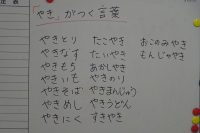 「やき」がつく言葉
やきとり たこやき おこのみやき
やきなす たいやき もんじゃやき
やきもち あかしやき
やきいも やきのり
やきそば やきまんじゅう
やきめし やきうどん
やきにく すきやき